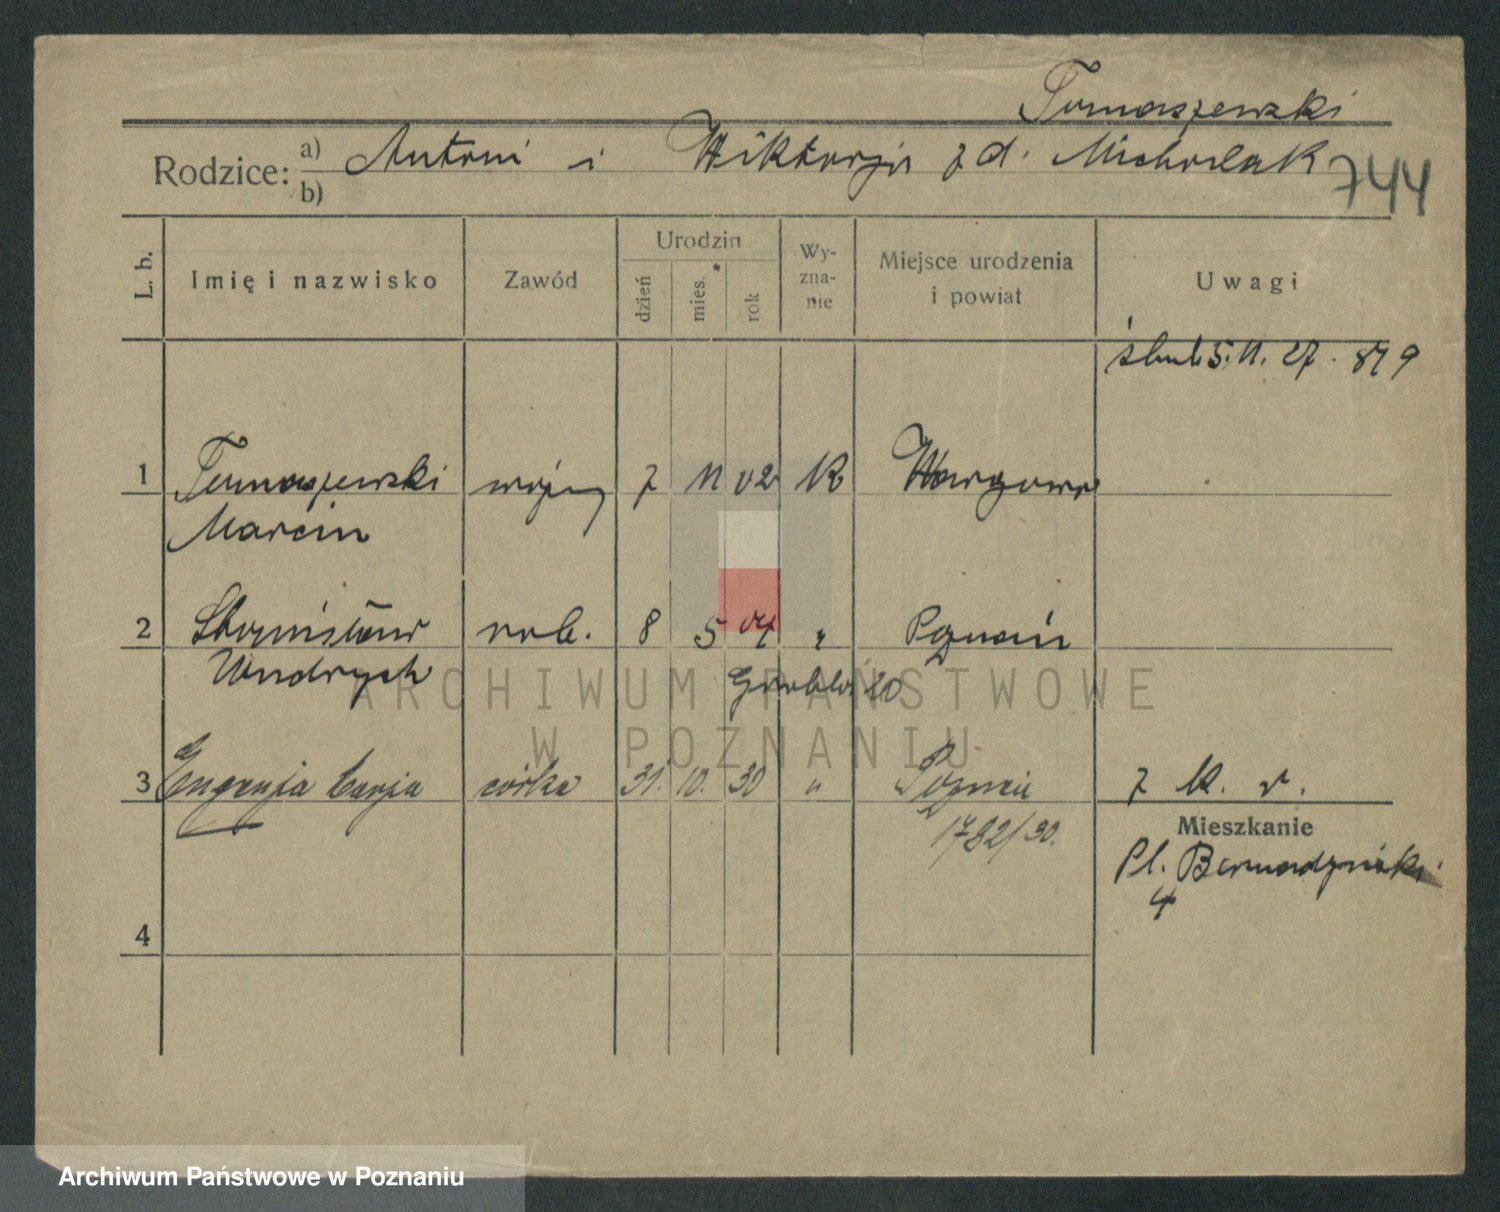 Tomaszewski
Rodzice: a) Antoni i Wiktorja z d. Michalak 744
b)
L. b. Imię i nazwisko Zawód Urodzin dzień mies. rok Wy-zna-nie Miejsce urodzenia i powiat Uwagi
ślub 5. 11. 27. 879
1 Tomaszewski woźny 7 11 02 K Wargowo
Marcin
2 Stanisława rob. 8 5 04 " Poznań
Wudrych Grobla 20
3 Eugenja córka 31. 10. 30 " Poznań 7 K. r.
1782/30. Mieszkanie
Pl. Bernardyński
4
4
ARCHIWUM PAŃSTWOWE
W POZNANIU
Archiwum Państwowe w Poznaniu